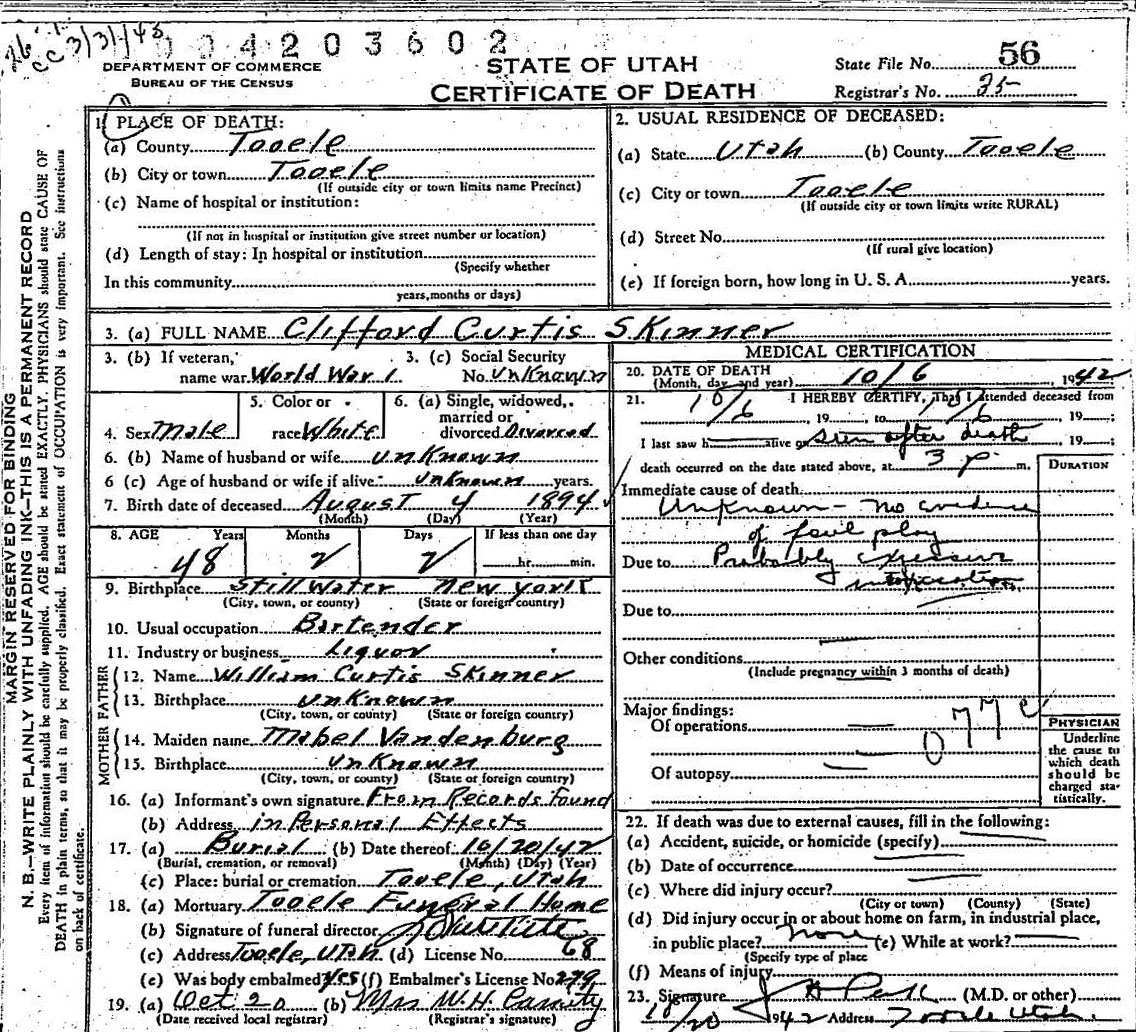 26
cc 3/31/43
004203602
DEPARTMENT OF COMMERCE
BUREAU OF THE CENSUS
STATE OF UTAH
CERTIFICATE OF DEATH
State File No. 56
Registrar's No. 35
MARGIN RESERVED FOR BINDING
N. B.—WRITE PLAINLY WITH UNFADING INK—THIS IS A PERMANENT RECORD
Every item of information should be carefully supplied. AGE should be stated EXACTLY. PHYSICIANS should state CAUSE OF
DEATH in plain terms, so that it may be properly classified. Exact statement of OCCUPATION is very important. See instructions
on back of certificate.
1. PLACE OF DEATH:
(a) County Tooele
(b) City or town Tooele
(If outside city or town limits name Precinct)
(c) Name of hospital or institution:
(If not in hospital or institution give street number or location)
(d) Length of stay: In hospital or institution
(Specify whether
In this community
years, months or days)
2. USUAL RESIDENCE OF DECEASED:
(a) State Utah (b) County Tooele
(c) City or town Tooele
(If outside city or town limits write RURAL)
(d) Street No.
(If rural give location)
(e) If foreign born, how long in U. S. A. years.
3. (a) FULL NAME Clifford Curtis Skinner
3. (b) If veteran, 3. (c) Social Security
name war World War 1 No. Unknown
5. Color or 6. (a) Single, widowed, married or
4. Sex Male race White divorced Divorced
6. (b) Name of husband or wife unknown
6 (c) Age of husband or wife if alive unknown years.
7. Birth date of deceased August 4 1894
(Month) (Day) (Year)
8. AGE Years Months Days If less than one day
48 2 2 hr. min.
9. Birthplace Still Water New York
(City, town, or county) (State or foreign country)
10. Usual occupation Bartender
11. Industry or business Liquor
FATHER
12. Name William Curtis Skinner
13. Birthplace unknown
(City, town, or county) (State or foreign country)
MOTHER
14. Maiden name Mabel Vandenburg
15. Birthplace unknown
(City, town, or county) (State or foreign country)
16. (a) Informant's own signature From Records Found
(b) Address in Personal Effects
17. (a) Burial (b) Date thereof 10/20/42
(Burial, cremation, or removal) (Month) (Day) (Year)
(c) Place: burial or cremation Tooele, Utah
18. (a) Mortuary Tooele Funeral Home
(b) Signature of funeral director
(c) Address Tooele, Utah (d) License No. 68
(e) Was body embalmed Yes (f) Embalmer's License No. 279
19. (a) Oct 20 (b) Mrs W. H. Cassity
(Date received local registrar) (Registrar's signature)
MEDICAL CERTIFICATION
20. DATE OF DEATH
(Month, day and year) 10/6, 1942
21. I HEREBY CERTIFY, That I attended deceased from
10/6, 19 to 10/6, 19 ;
I last saw h alive o seen after death, 19 ;
death occurred on the date stated above, at 3 p. m.
DURATION
Immediate cause of death
Unknown - no evidence
of foul play
Due to Probably excessive
intoxication
Due to
Other conditions
(Include pregnancy within 3 months of death)
Major findings:
Of operations
077c
Of autopsy
PHYSICIAN
Underline
the cause to
which death
should be
charged sta-
tistically.
22. If death was due to external causes, fill in the following:
(a) Accident, suicide, or homicide (specify)
(b) Date of occurrence
(c) Where did injury occur?
(City or town) (County) (State)
(d) Did injury occur in or about home on farm, in industrial place,
in public place? none (e) While at work?
(Specify type of place
(f) Means of injury
23. Signature (M.D. or other)
10/20 1942 Address Tooele Utah.